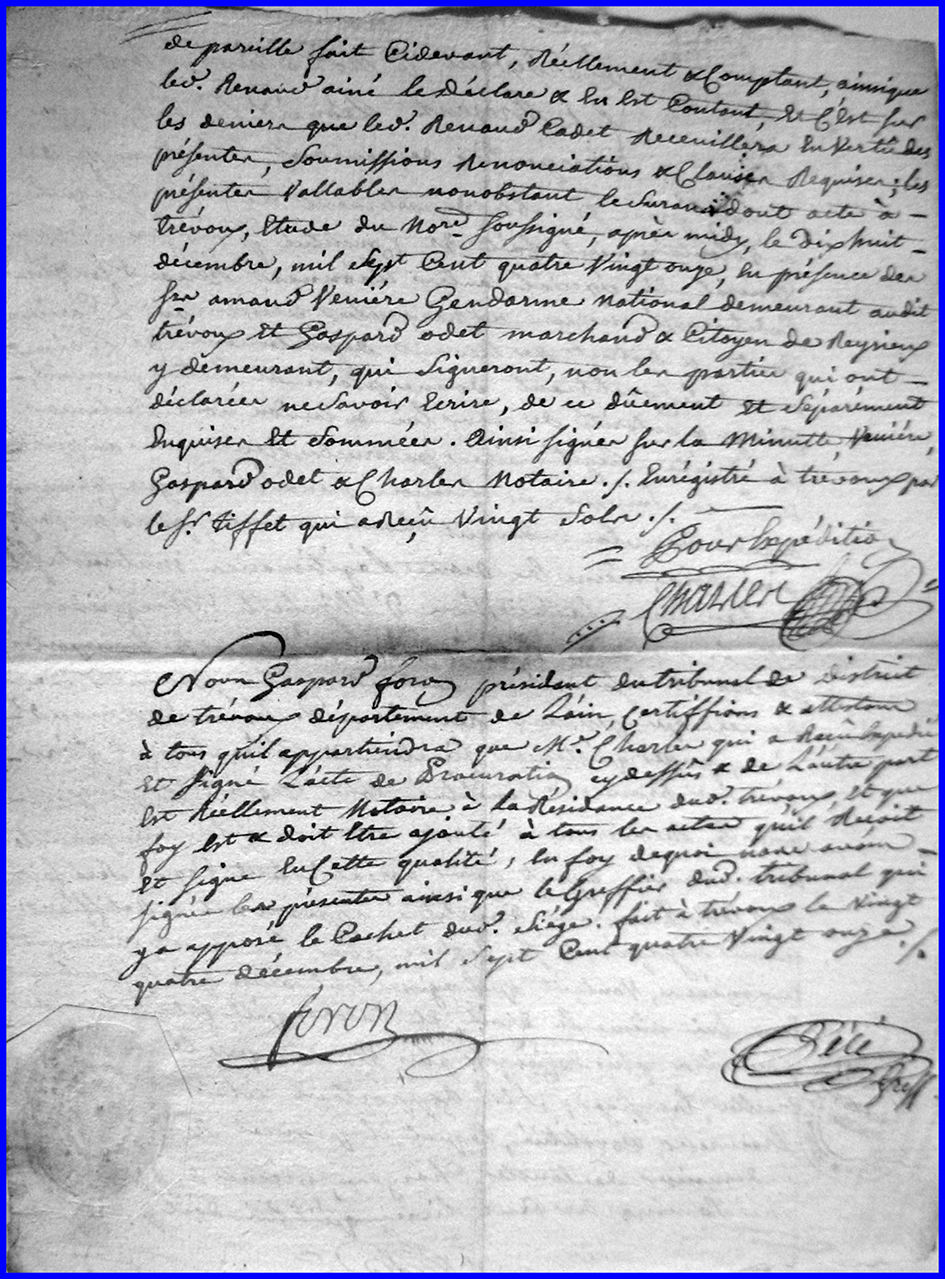 de pareille fait Cidevant, Réellement & Comptant, ainsique
led. Renaud ainé le déclare & En Est Contant, Et C'est sur
les deniers que led. Renaud Cadet Recevillera En Vertu des
présentes, Soumissions Renonciations & Clauses Requises; les
présentes Vallables nonobstant le dont acte à
trévoux, Etude du Nore. soussigné, après midy, le dix huit
décembre, mil sept Cent quatre Vingt onze, En présence des
srs amand Veniére Gendarme national demeurant audit
trévoux Et Gaspard odet marchand & Citoyen de Reyrieux
y demeurant, qui signeront, non les parties qui ont
déclarées ne savoir Ecrire, de ce dûement Et Séparément
Enquises Et Sommées. Ainsi signés sur la Minutte Veniére,
Gaspard odet & Charles Notaire ./. Enrégistré à trévoux par
le Sr. tiffet qui a Reçû Vingt Sols ./.
Pour Expédition
Charles
Nous Gaspard président du tribunal de District
de trévoux département de L'ain, Certiffions & attestons
à tous qu'il appartiendra que Me. Charles qui a Reçû Expédié
Et Signé L'acte de Procuration cy dessûs & de L'autre part
Est Réellement Notaire à La Résidence dud. trévoux, Et que
foy Est & doit Etre ajouté à tous les actes qu'il Reçoit
Et signe En Cette qualité, En foy dequoi nous avons
signés les présentes ainsi que le Greffier dud. tribunal qui
y a apposé le Cachet dud. Siége. fait à trévoux le Vingt
quatre décembre, mil Sept Cent quatre Vingt onze ./.
Greff